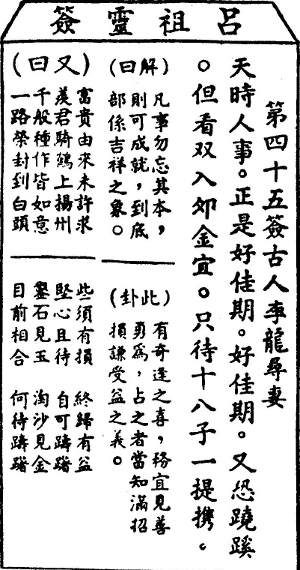 呂祖靈簽
第四十五簽古人李龍尋妻
天時人事。正是好佳期。好佳期。又恐蹺蹊
。但看双入夘金宜。只待十八子一提携。
(解曰)
凡事勿忘其本,
則可成就,到底
部係吉祥之象。
(此卦)
有奇逢之喜,務宜見善
勇為,占之者當知滿招
損謙受益之義。
(又曰)
富貴由來未許求
羨君騎鶴上揚州
千般種作皆如意
一路榮封到白頭
些須有損 終歸有益
堅心且待 自可躊躇
鑿石見玉 淘沙見金
目前相合 何待躊躇